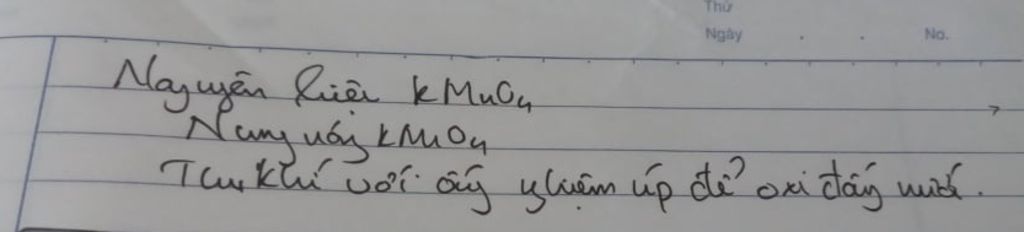 Thứ
Ngày . . No.
Nguyên liệu KMnO4
Nung nóng KMnO4
Thu khí với ống nghiệm úp để oxi đẩy nước.